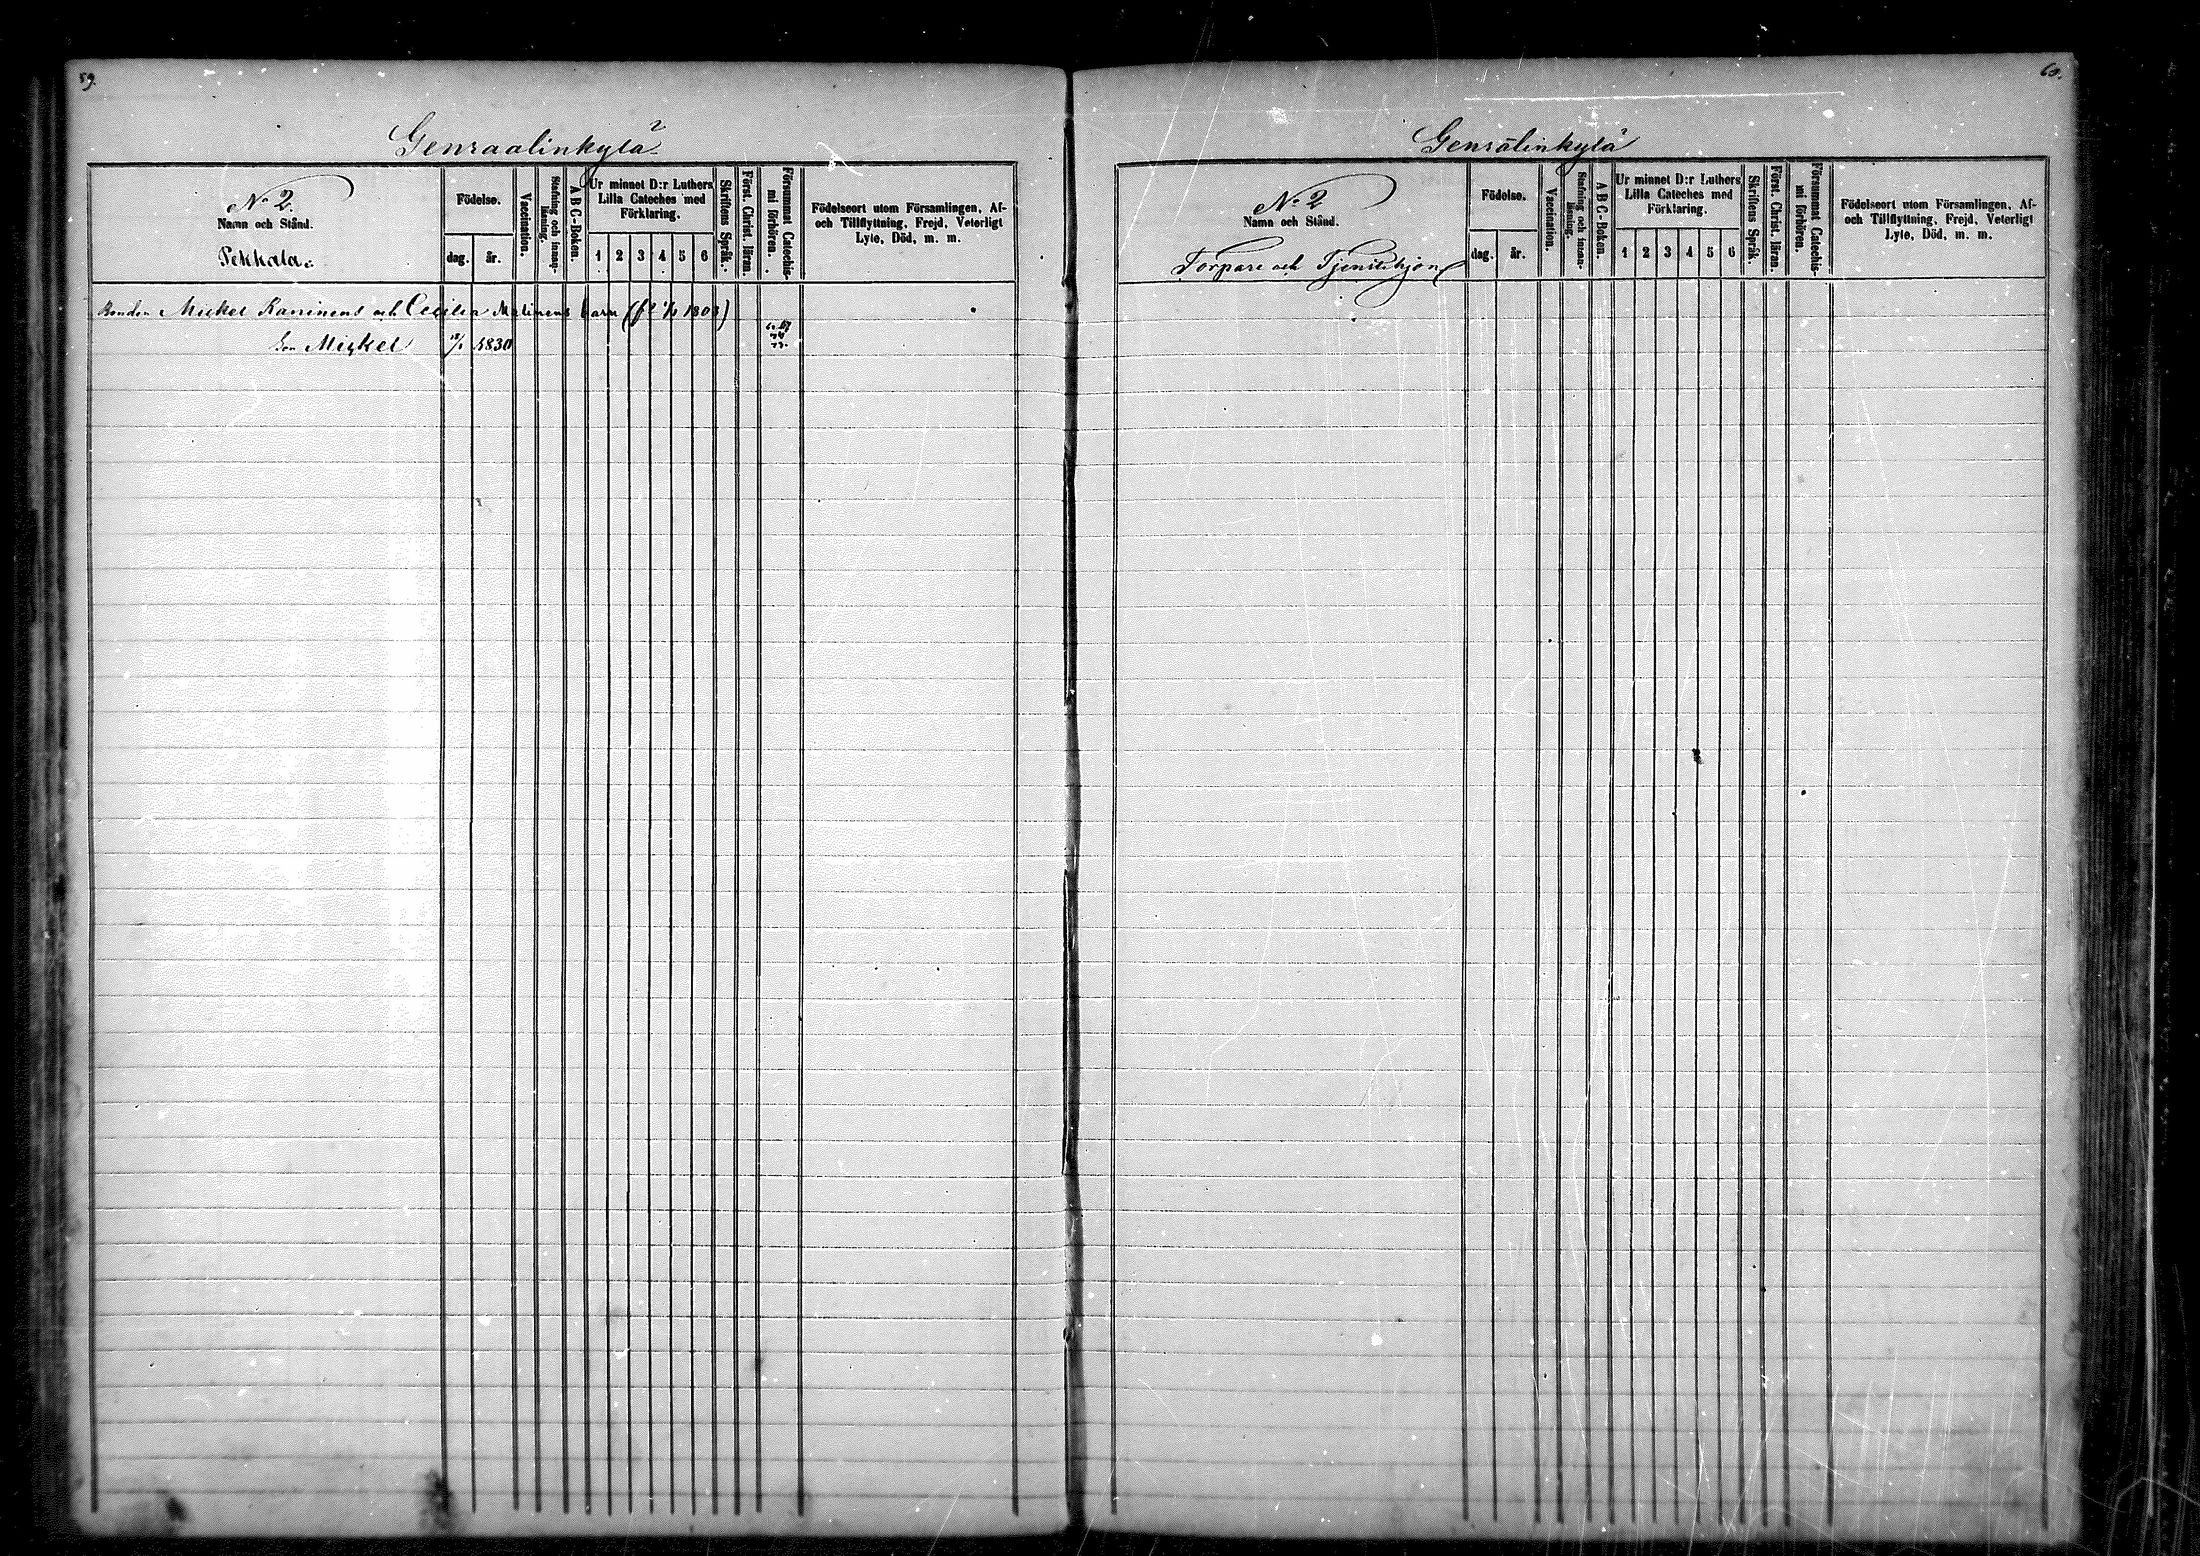 59.
Genraalinkylä
No 2.
Namn och Stånd.
Pekkala.
Födelse.
dag.
år.
Vaccination.
Stafning och innanläsning.
A B C-Boken.
Ur minnet D:r Luthers Lilla Cateches med Förklaring.
1 2 3 4 5 6
Skriftens Språk.
Först. Christ. läran.
Försummat Catechismi förhören.
Födelseort utom Församlingen, Af-
och Tillflyttning, Frejd, Veterligt
Lyte, Död, m. m.
Bonden Mickel Kaninens och Cecilia Matinens barn
1803)
Son Mickel 1830
60.
Genrälinkylä
No 2
Namn och Stånd.
Torpare och Tjenstehjon
Födelse.
dag.
år.
Vaccination.
Stafning och innanläsning.
A B C-Boken.
Ur minnet D:r Luthers
Lilla Cateches med
Förklaring.
1 2 3 4 5 6
Skriftens Språk.
Först. Christ. läran.
Försummat Catechismi förhören.
Födelseort utom Församlingen, Af-
och Tillflyttning, Frejd, Veterligt
Lyte, Död, m. m.